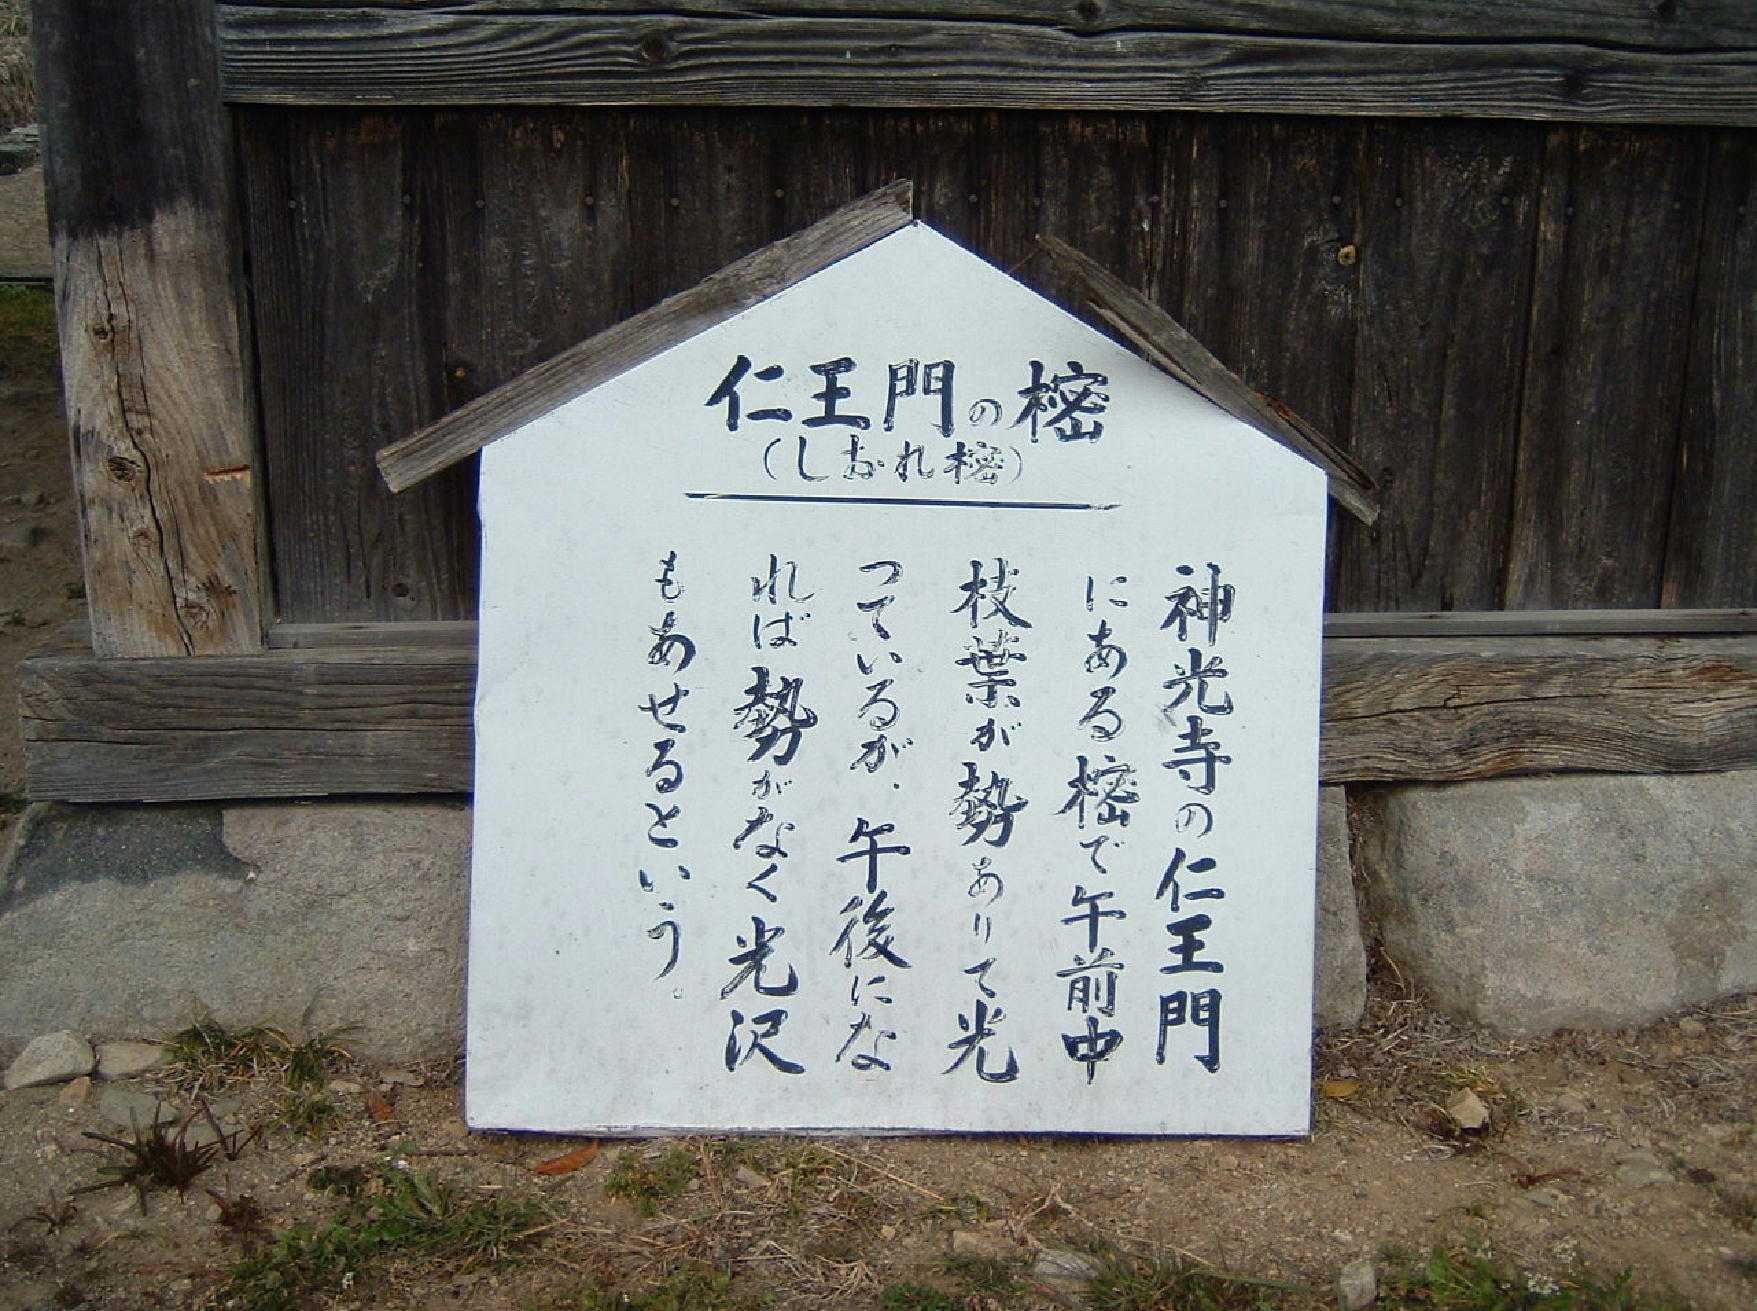 仁王門の樒
（しおれ樒）
神光寺の仁王門
にある樒で午前中
枝葉が勢ありて光
っているが、午後にな
れば勢がなく光沢
もあせるという。